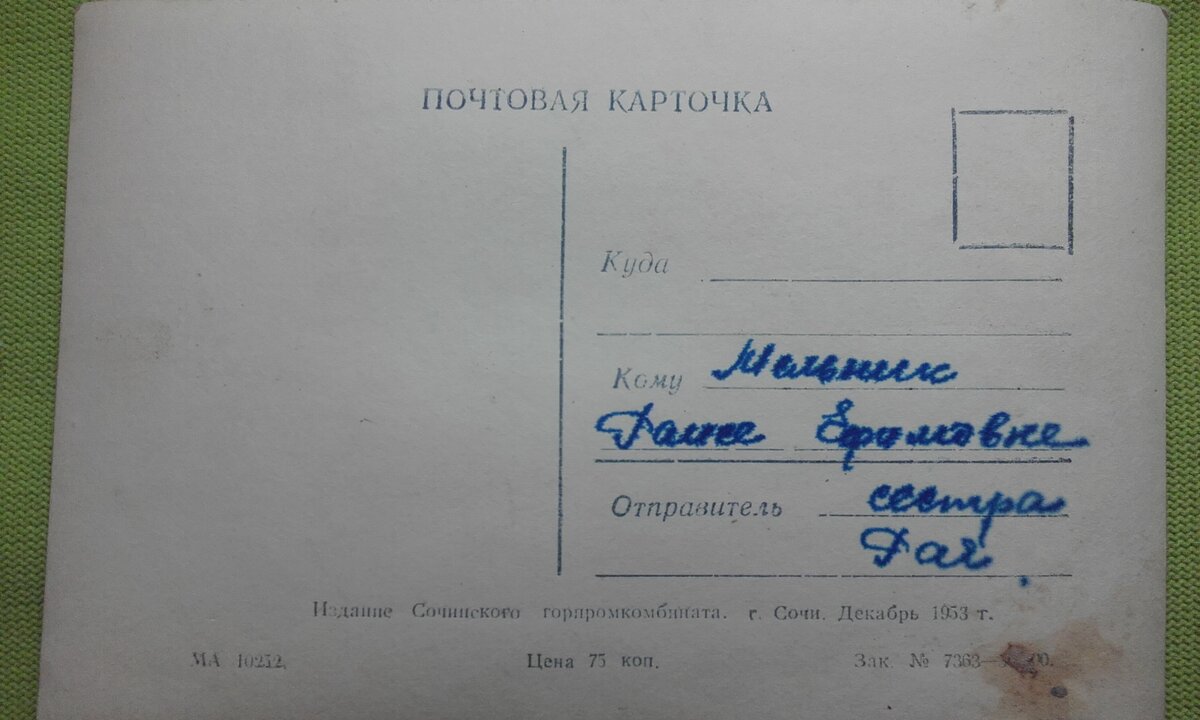 ПОЧТОВАЯ КАРТОЧКА
Куда
Кому Мельник
Ефимовне
Отправитель сестра
Издание Сочинского горпромкомбината. г. Сочи. Декабрь 1953 г.
МА 10212. Цена 75 коп. Зак. № 7363—